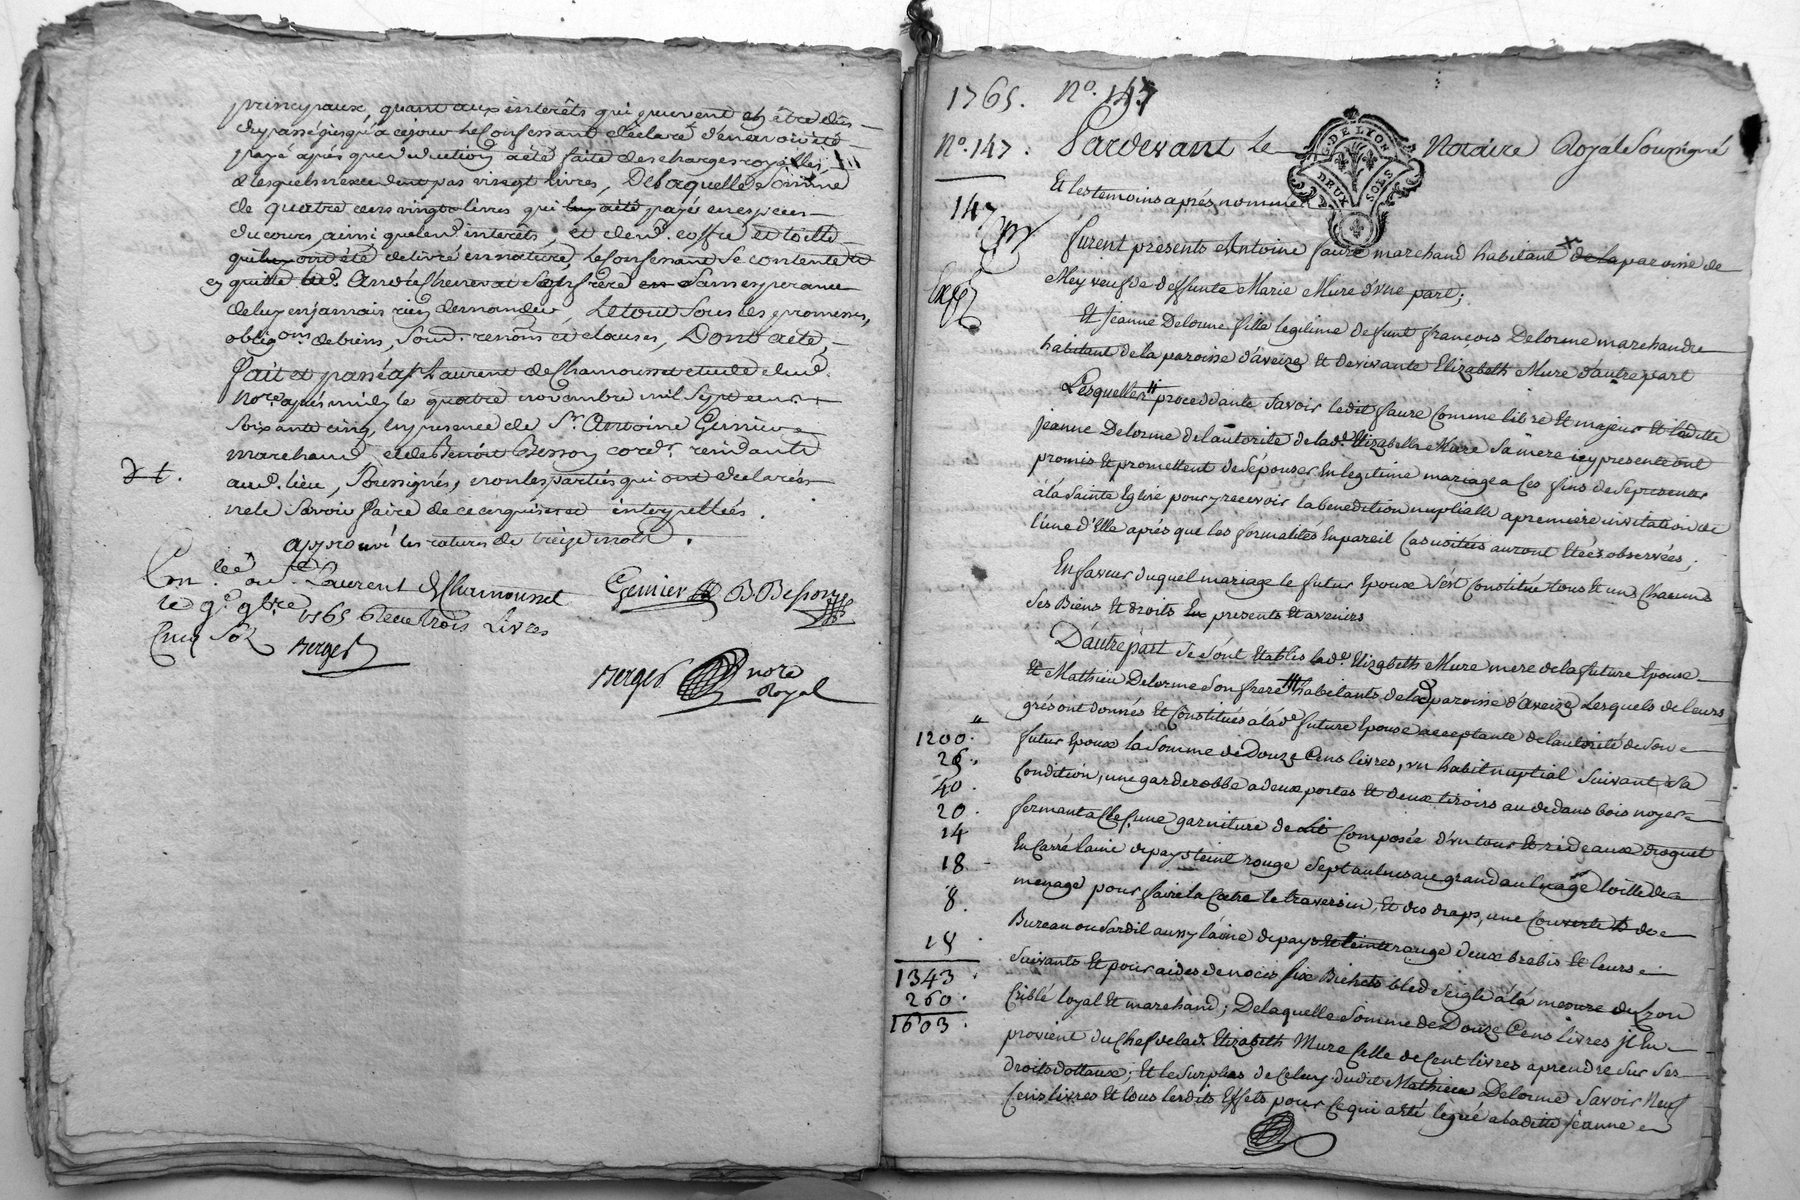 principaux, quant aux interêts qui peuvent en être dûs
du passé jusqu'a ce jour le Confessant declare d'en avoir été
payé après que deduction a été faite des charges royalles,
& lesquels n'excedent pas vingt livres, De laquelle Somme
de quatre cens vingt livres qui luy a été payé en especes
du cours, ainsi que led. interêts, et de lad. coffre et toille
qui luy ont été delivré en nature, le Confessant Se contente &
en quitte led. André Chenevat Son frère Sans esperance
de luy en jamais rien demander, Le tout Sous les promesses,
obligons. de biens, Soum. renons et clauses, Dont acte,
fait et passé a St Laurent de Chamousset etude dud.
Nore. après midy le quatre novembre mil Sept cens
Soixante cinq, En presence de Sr. Antoine Genier
marchand, et de Benoit Besson cordr. residants
aud. lieu, Soussignés, non les parties qui ont declarés
ne le Savoir faire de ce enquises et interpellées.
approuvé les ratures de treize mots.
Genier B. Besson
Conlée au St Laurent de Chamousset
le 9e. 9bre 1765 Reçu trois Livres
Cinq Sols Berger
Berger nore
Royal
1765. No. 147
No. 147.
147
Expé
G. DE LYON
DEUX SOLS
Pardevant Le Notaire Royal Soussigné
Et les temoins après nommés
furent presents Antoine faure marchand habitant de la paroisse de
Meÿ veuf de deffunte Marie Mure d'une part;
Et Jeanne Delorme fille legitime de funt françois Delorme marchand
habitant de la paroisse d'aveize Et de vivante Elizabeth Mure d'autre part
Lesquelles procedantes Savoir ledit faure Comme libre Et majeur Et ladite
Jeanne Delorme de l'autorité de lade. Elizabeth Mure Sa mere icy presente ont
promis Et promettent de S'épouser En legitime mariage a Ces fins de Se presenter
à la Sainte Eglise pour y recevoir la benediction nuptialle a premiere invitation de
l'une d'Elle après que les formalités En pareil Cas usitées auront Etées observées;
En faveur duquel mariage le futur Epoux S'est Constitué tous Et un Chacuns
Ses Biens Et droits presents Et avenirs
D'autre part Se Sont Etablis lade. Elizabeth Mure mere de la future Epouse
Et Mathieu Delorme Son frere habitants de lad. paroisse d'Aveize Lesquels de leurs
grés ont donnés Et Constitués à lade. future Epouse acceptante de l'autorité de Son
futur Epoux la Somme de Douze Cens livres, un habit nuptial Suivant Sa
Condition, une garderobbe a deux portes Et deux tiroirs au dedans bois noyer
fermant a Clef, une garniture de Lit Composée d'un tour Et rideaux droguet
En Carré laine de pays teint rouge Sept aulnes au grand aulnage toille de
menage pour faire la Coetre le traversin, Et des draps, une Couverte de
Bureau ou Sardil aussy laine de pays Et teinte rouge deux brebis Et leurs
Suivants Et pour aides de noces Six Bichets bled Seigle à la mesure de Lyon
Criblé loyal Et marchand; De laquelle Somme de Douze Cens livres Il En
provient du Chef de lad. Elizabeth Mure Celle de Cent livres a prendre Sur Ses
droits dottaux; Et le Surplus de Celuy dudit Mathieu Delorme Savoir Neuf
Cens livres Et tous lesdits Effets pour Ce qui a été legué a ladite Jeanne
1200.
25.
40.
20.
14
18
8.
18
1343.
260.
1603.